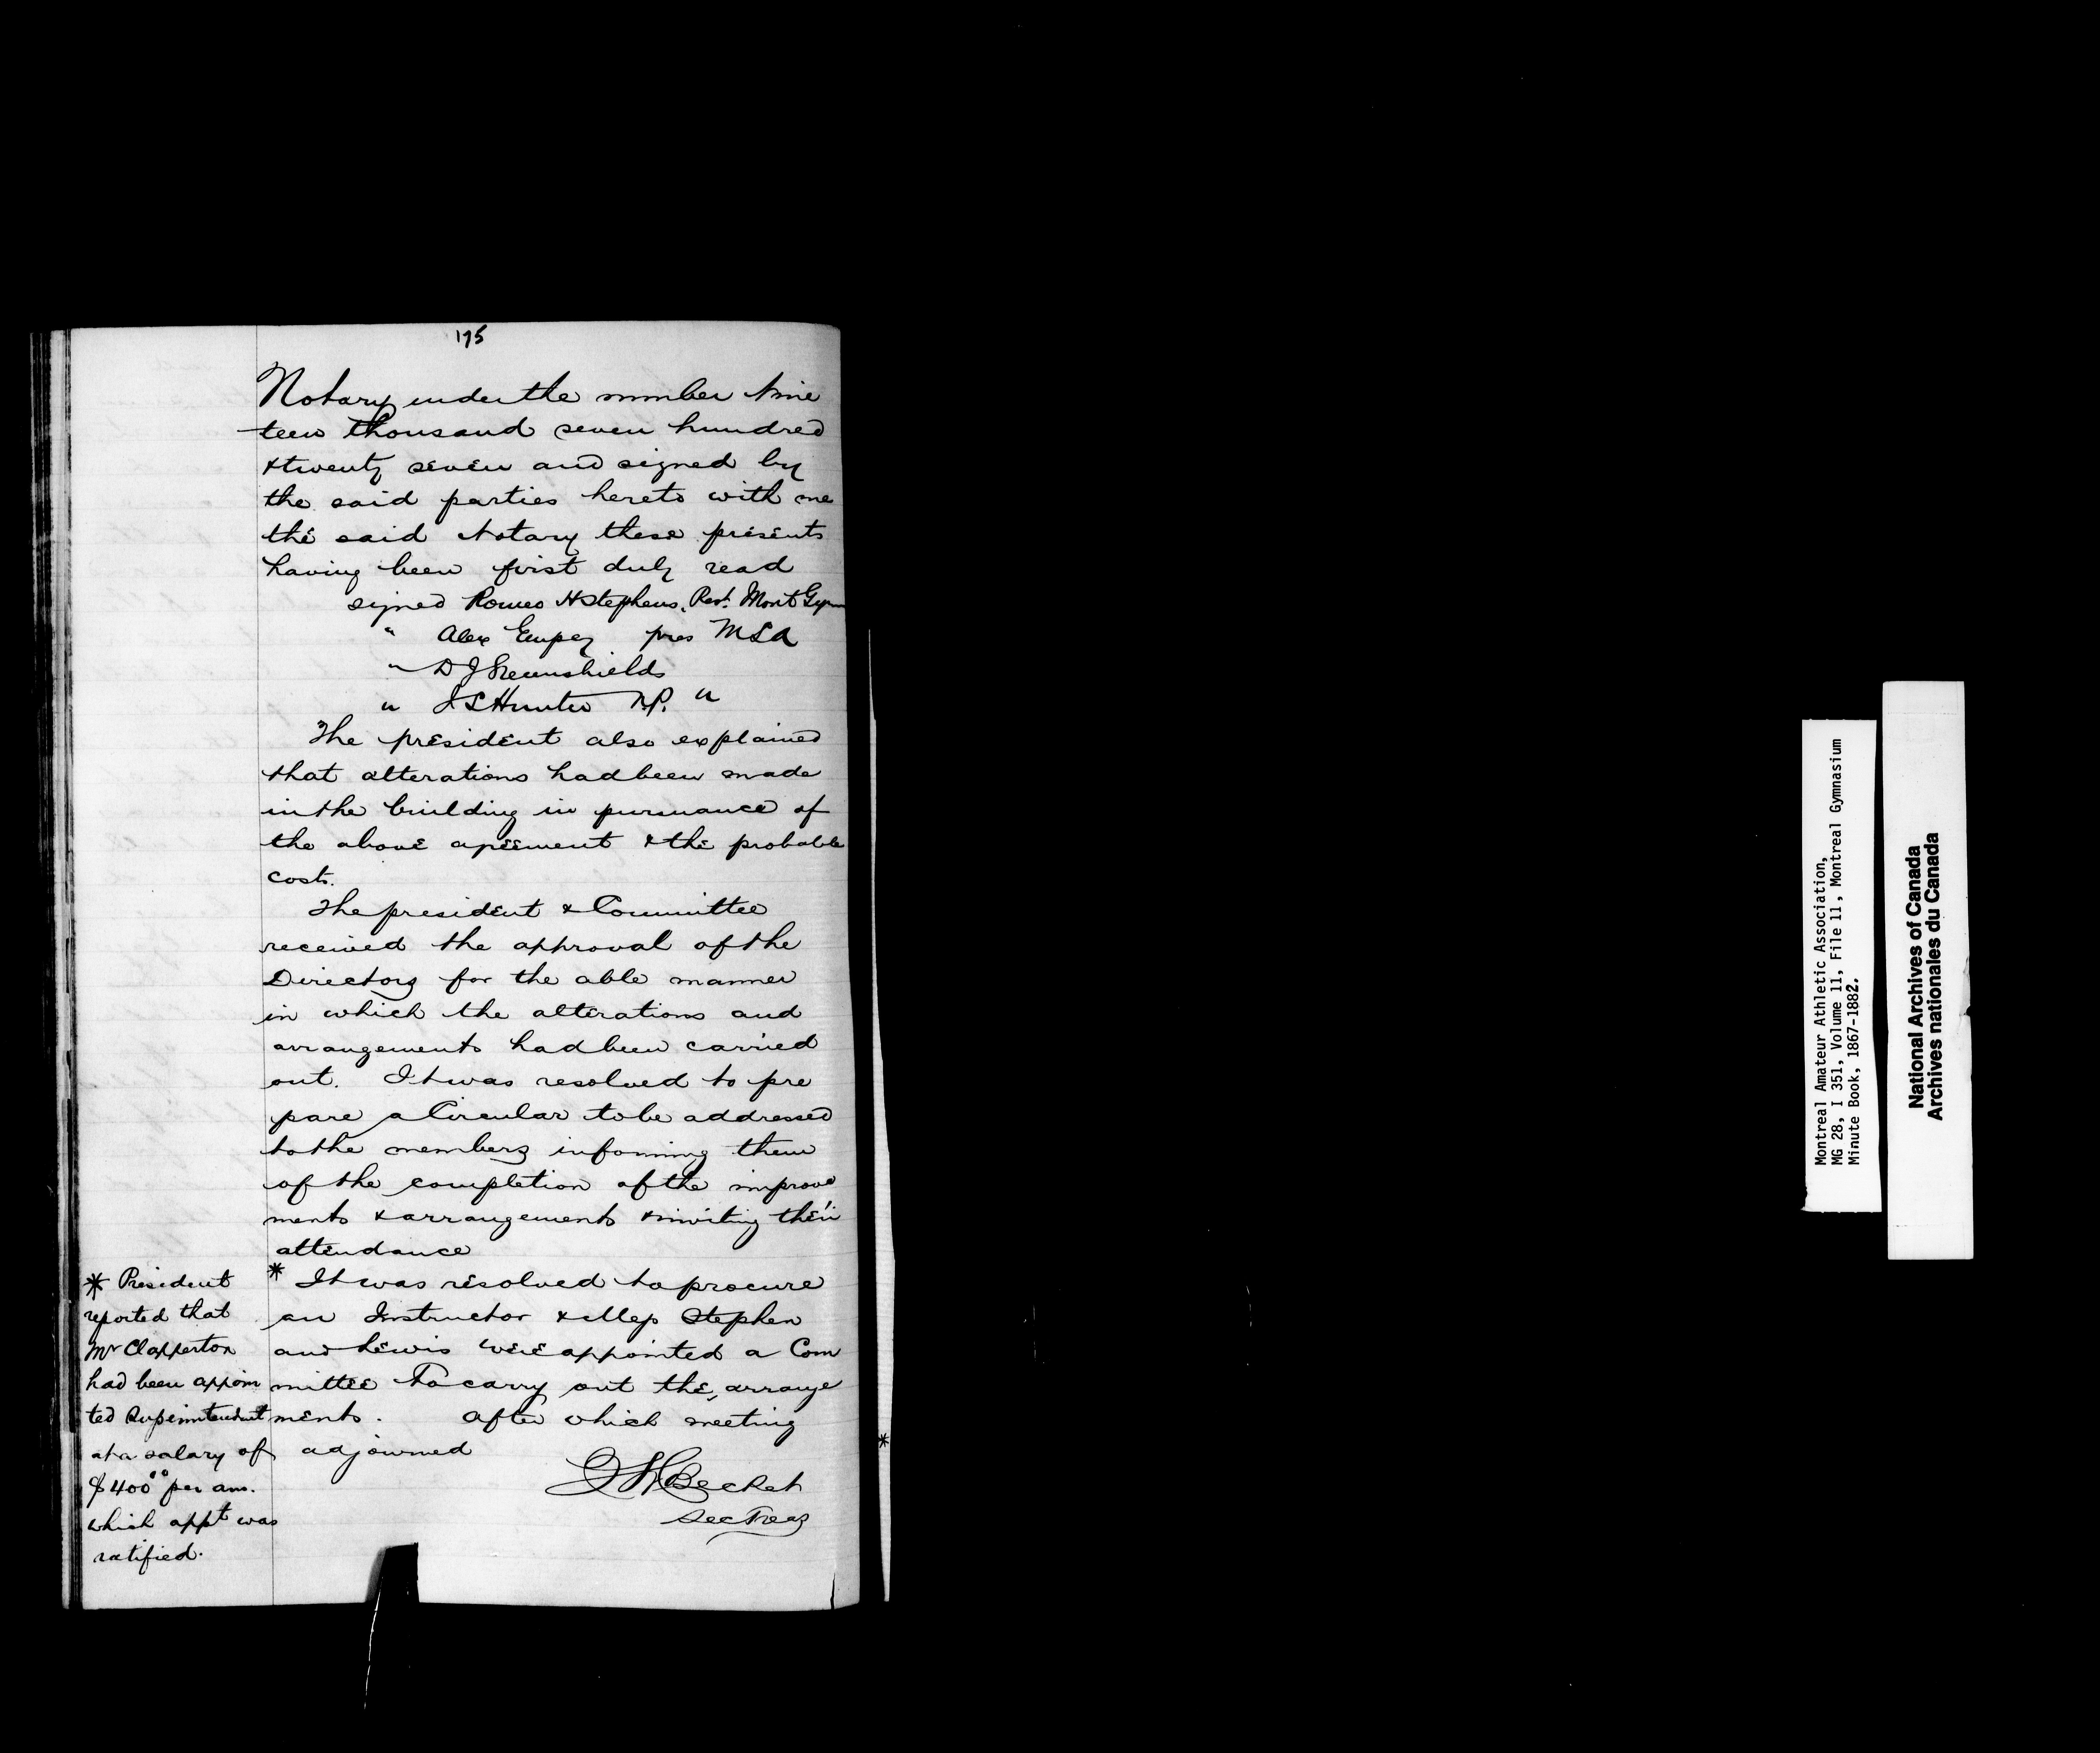 175
Notary under the number Nine
teen thousand seven hundred
& twenty seven and signed by
the said parties hereto with me
the said Notary these presents
having been first duly read
signed Romeo H Stephens, Prest. Mont Gym
" Alex Empey pres MSA
" D J Greenshields
" J S Hunter N.P. "
The president also explained
that alterations had been made
in the building in pursuance of
the above agreement & the probable
cost.
The president & Committee
received the approval of the
Directors for the able manner
in which the alterations and
arrangements had been carried
out. It was resolved to pre
pare a Circular to be addressed
to the members informing them
of the completion of the improve
ments & arrangements & inviting their
attendance
* It was resolved to procure
an Instructor & Messs Stephen
and Lewis were appointed a Com
mittee to carry out the arrange
ments. After which meeting
adjourned
Becket
Sec Treas
* President
reported that
Mr Clapperton
had been appoin
ted Superintendent
at a salary of
$400.00 per ann.
which appt was
ratified.
*
Montreal Amateur Athletic Association,
MG 28, I 351, Volume 11, File 11, Montreal Gymnasium
Minute Book, 1867-1882.
National Archives of Canada
Archives nationales du Canada